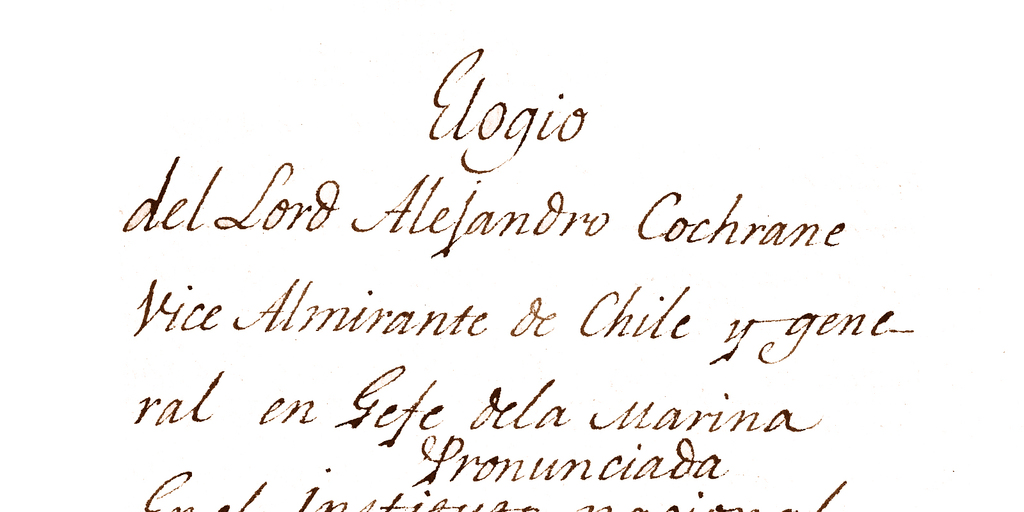 Elogio
del Lord Alejandro Cochrane
Vice Almirante de Chile y gene-
ral en Gefe dela Marina
Pronunciada
En el instituto nacional